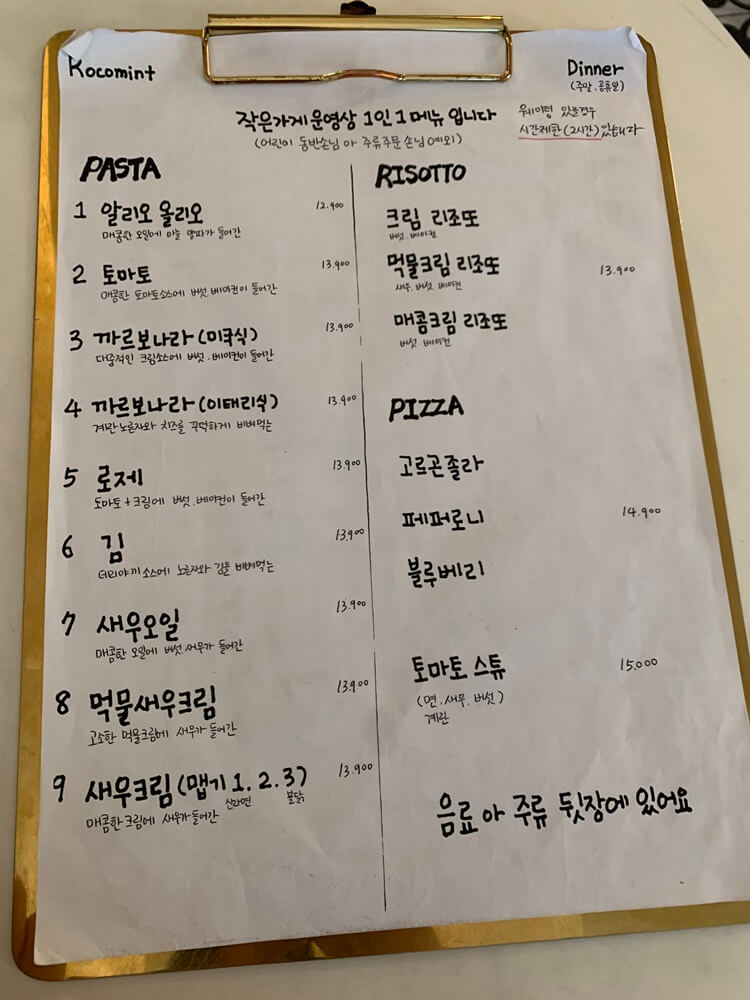 Kocomint
Dinner
(주말.공휴일)
작은가게 운영상 1인 1메뉴 입니다
(어린이 동반손님 아 주류주문 손님 예외)
웨이팅 있을경우
시간제한(2시간)있습니다
PASTA
1 알리오 올리오 12.900
매콤한 오일에 마늘 양파가 들어간
2 토마토 13.900
매콤한 토마토소스에 버섯.베이컨이 들어간
3 까르보나라(미국식) 13.900
대중적인 크림소스에 버섯.베이컨이 들어간
4 까르보나라(이태리식) 13.900
계란노른자와 치즈를 꾸덕하게 비벼먹는
5 로제 13.900
토마토+크림에 버섯.베이컨이 들어간
6 김 13.900
데리야끼소스에 노른자와 김을 비벼먹는
7 새우오일 13.900
매콤한 오일에 버섯.새우가 들어간
8 먹물새우크림 13.900
고소한 먹물크림에 새우가 들어간
9 새우크림(맵기 1. 2. 3) 13.900
신라면 불닭
매콤한크림에 새우가 들어간
RISOTTO
크림 리조또
버섯.베이컨
먹물크림 리조또 13.900
새우.버섯.베이컨
매콤크림 리조또
버섯.베이컨
PIZZA
고르곤졸라
페퍼로니 14.900
블루베리
토마토 스튜 15.000
(면.새우.버섯)
계란
음료 아 주류 뒷장에 있어요